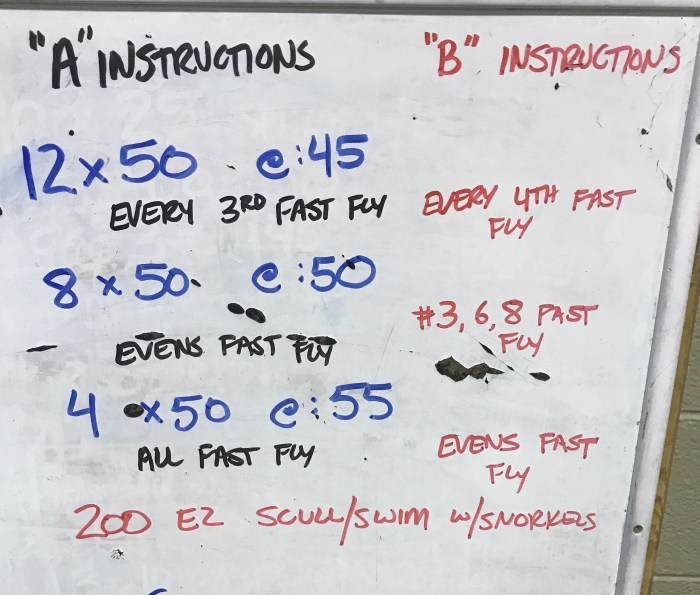 "A" INSTRUCTIONS
"B" INSTRUCTIONS
12 x 50 @ :45
EVERY 3RD FAST FLY
EVERY 4TH FAST
FLY
8 x 50 @ :50
EVENS FAST FLY
#3, 6, 8 FAST
FLY
4 x 50 @ :55
ALL FAST FLY
EVENS FAST
FLY
200 EZ SCULL/SWIM W/SNORKELS